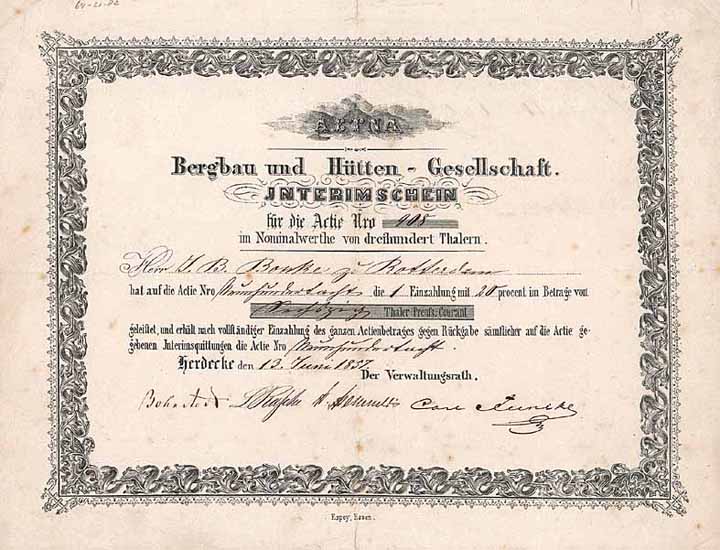 AETNA
Bergbau und Hütten - Gesellschaft.
JNTERIMSCHEIN
für die Actie Nro 908
im Nominalwerthe von dreihundert Thalern.
Herr J. B. Bonke zu Rotterdam
hat auf die Actie Nro Neunhundertacht die 1 Einzahlung mit 20 procent im Betrage von
Sechszig Thaler Preufs. Courant
geleistet, und erhält nach vollständiger Einzahlung des ganzen Actienbetrages gegen Rückgabe sämtlicher auf die Actie ge-
gebenen Jnterimsquittungen die Actie Nro Neunhundertacht.
Herdecke den 13. Juni 1857
Der Verwaltungsrath.
Carl
Espey, Essen.